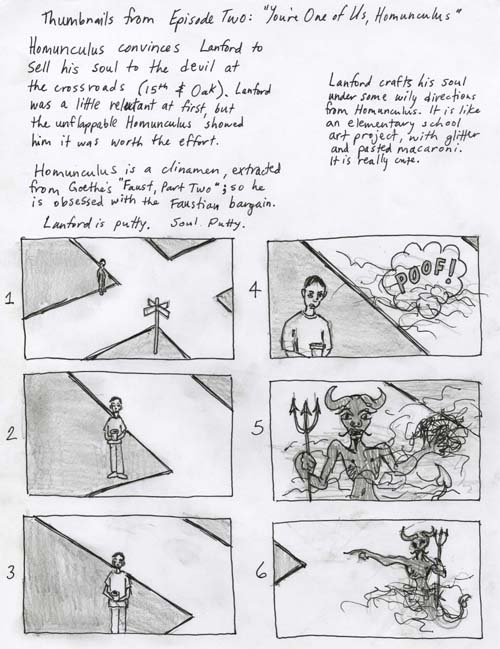 Thumbnails from Episode Two: "You're One of Us, Homunculus"
Homunculus convinces Lanford to
sell his soul to the devil at
the crossroads (15th & Oak). Lanford
was a little reluctant at first, but
the unflappable Homunculus showed
him it was worth the effort.
Homunculus is a clinamen, extracted
from Goethe's "Faust, Part Two"; so he
is obsessed with the Faustian bargain.
Lanford is putty. Soul Putty.
Lanford crafts his soul
under some wily directions
from Homunculus. It is like
an elementary school
art project, with glitter
and pasted macaroni.
It is really cute.
1
2
3
4
POOF!
5
6